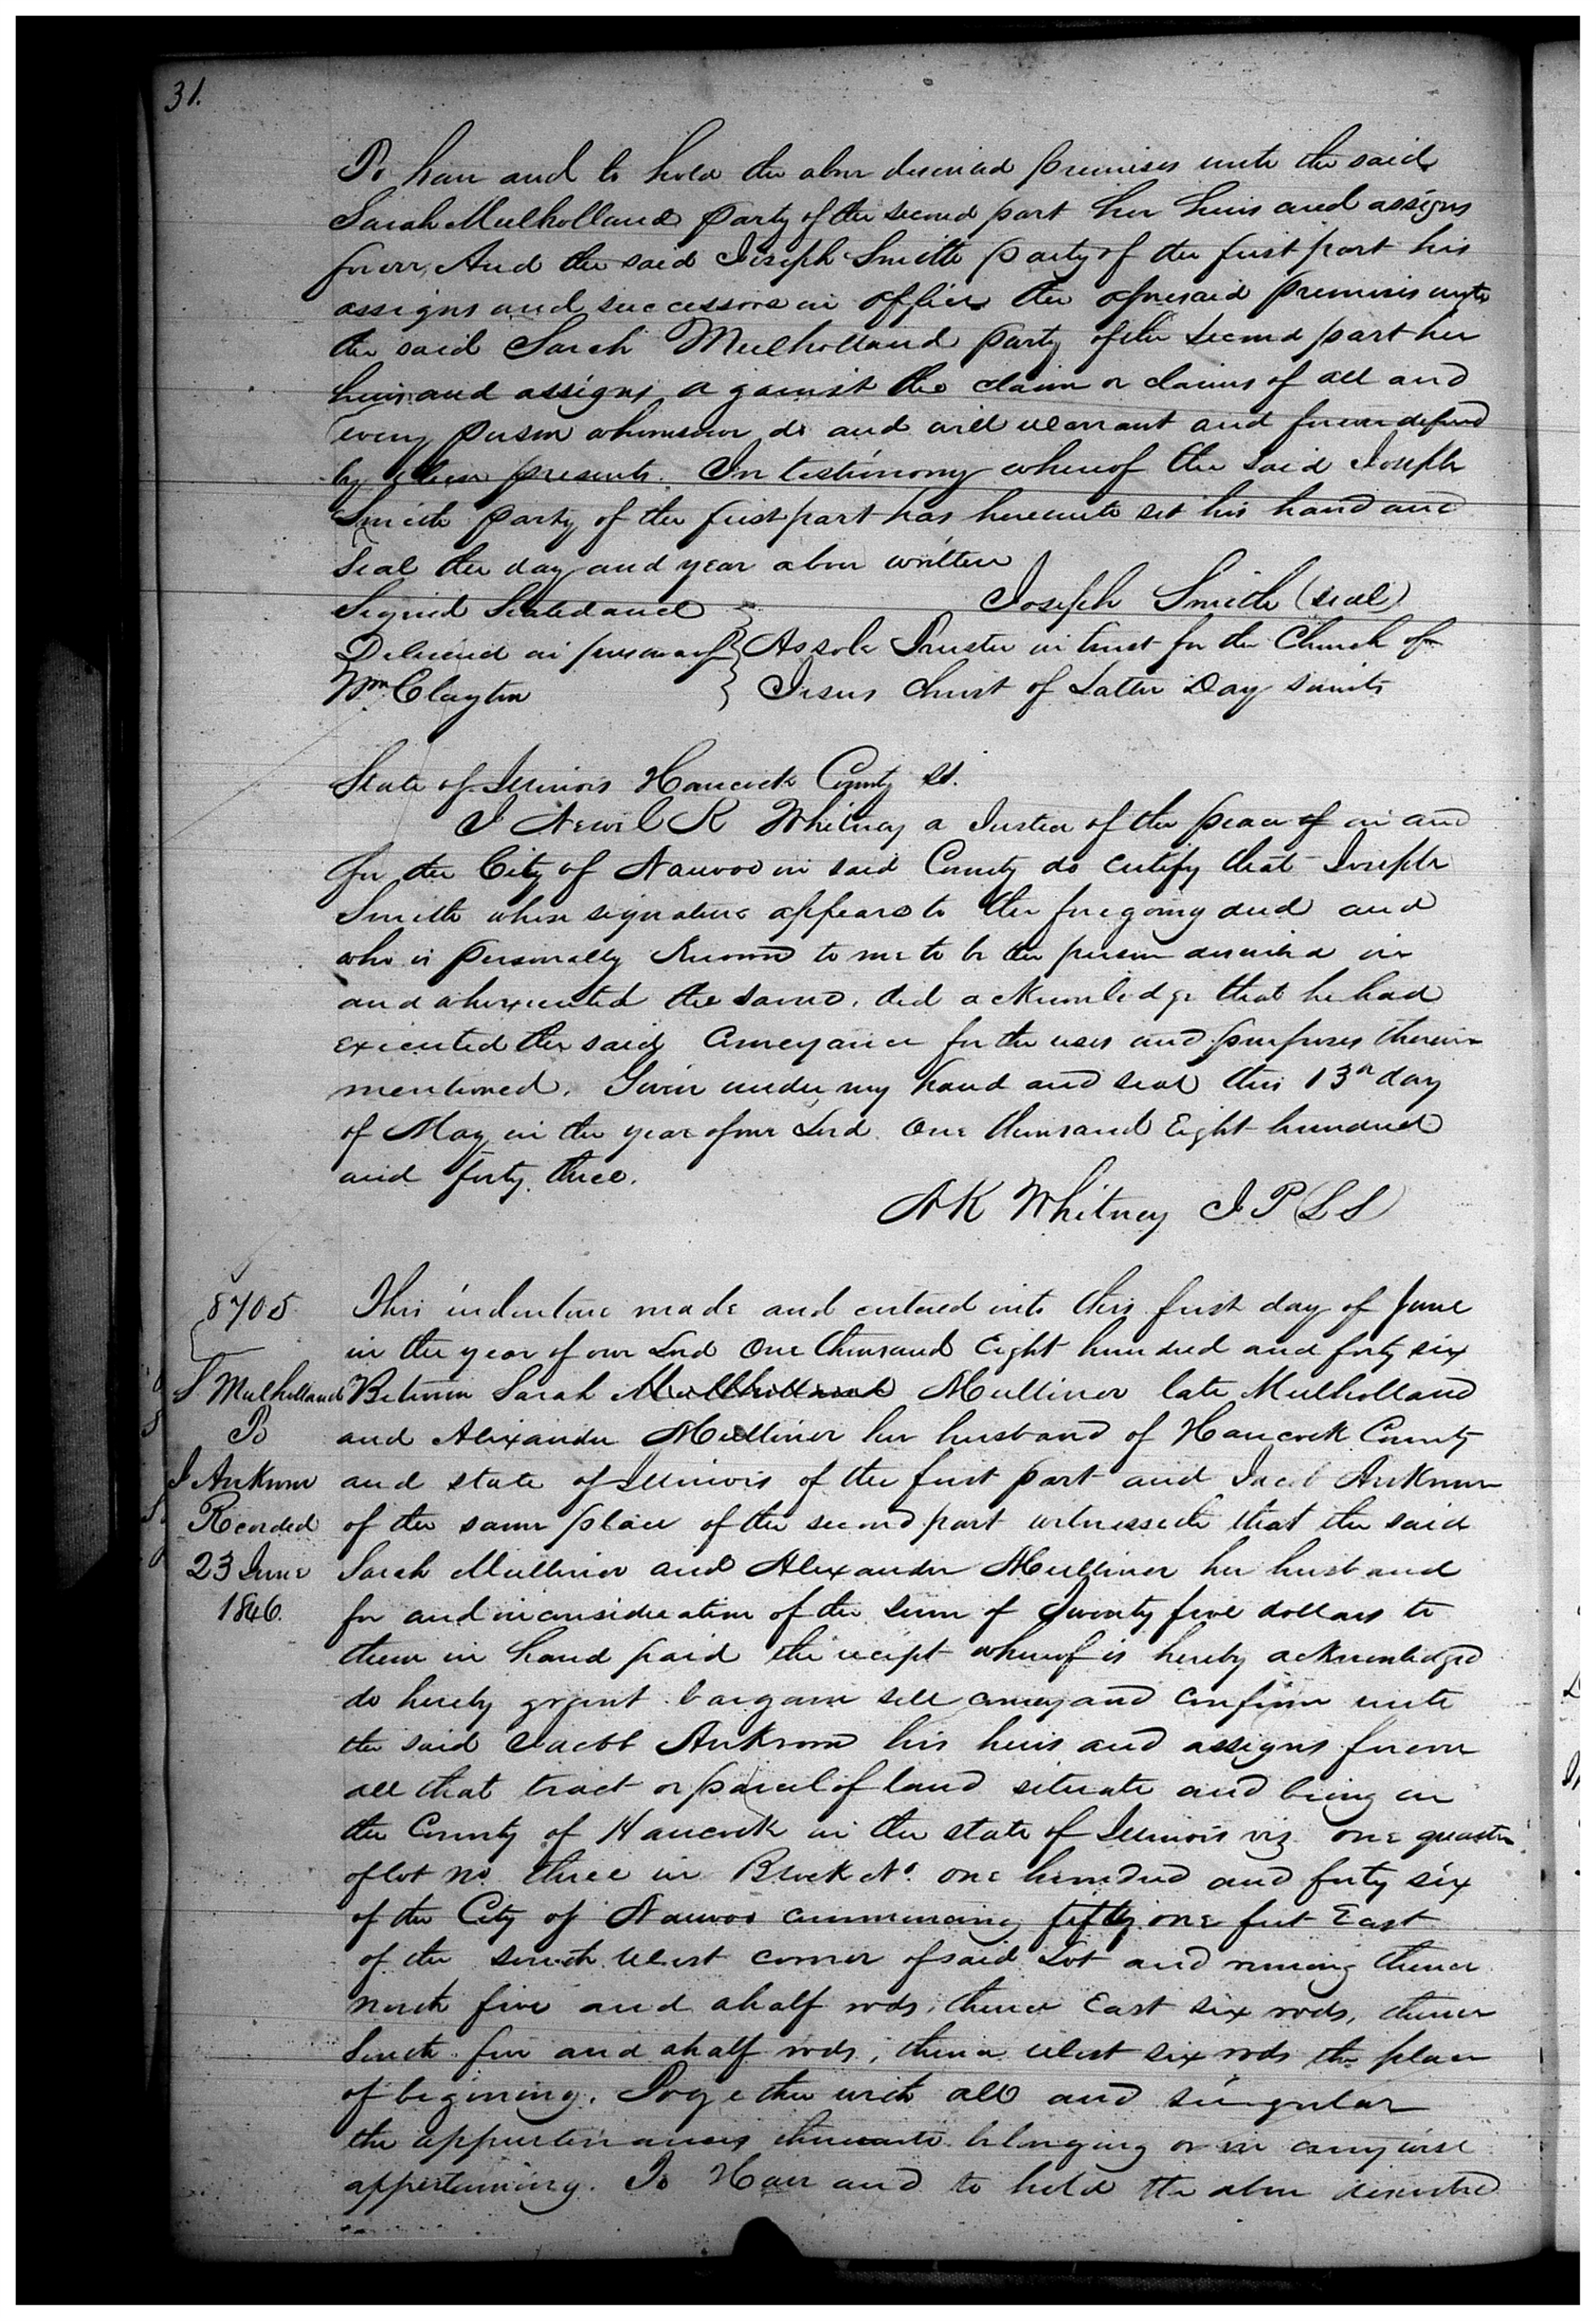 31.
To have and to hold the above described premises unto the said
Sarah Mulholland party of the second part her heirs and assigns
forever, And the said Joseph Smith party of the first part his
assigns and successors in office the aforesaid premises unto
the said Sarah Mulholland party of the second part her
heirs and assigns against the claim or claims of all and
every person whomsoever do and will warrant and forever defend
by these presents. In testimony whereof the said Joseph
Smith party of the first part has hereunto set his hand and
Seal the day and year above written
Signed Sealed and
Joseph Smith (seal)
Delivered in presence of
As sole Trustee in trust for the Church of
Wm. Clayton
Jesus Christ of Latter Day Saints
State of Illinois Hancock County ss.
I Newel K Whitney a Justice of the peace of in and
for the City of Nauvoo in said County do certify that Joseph
Smith whose signature appears to the foregoing deed and
who is personally known to me to be the person described in
and who executed the same, did acknowledge that he had
executed the said Conveyance for the uses and purposes therein
mentioned. Given under my hand and seal this 13th day
of May in the year of our Lord One thousand Eight hundred
and forty three.
N K Whitney J P (L S)
8705
S Mulholland
To
J Ankrom
Recorded
23 June
1846.
This indenture made and entered into this first day of June
in the year of our Lord One thousand Eight hundred and forty six
Between Sarah Mulholland Mulliner late Mulholland
and Alexander Mulliner her husband of Hancock County
and state of Illinois of the first part and Jacob Ankrom
of the same place of the second part witnesseth that the said
Sarah Mulliner and Alexander Mulliner her husband
for and in consideration of the sum of Twenty five dollars to
them in hand paid the receipt whereof is hereby acknowledged
do hereby grant bargain sell convey and confirm unto
the said Jacob Ankrom his heirs and assigns forever
all that tract or parcel of land situate and being in
the County of Hancock in the state of Illinois viz one quarter
of lot no. three in Block No. one hundred and forty six
of the City of Nauvoo commencing fifty one feet East
of the south West corner of said Lot and runing thence
north five and a half rods, thence East six rods, thence
South five and a half rods, thence West six rods the place
of begining. Together with all and singular
the appurtenances thereunto belonging or in anywise
appertaining. To Have and to hold the above described